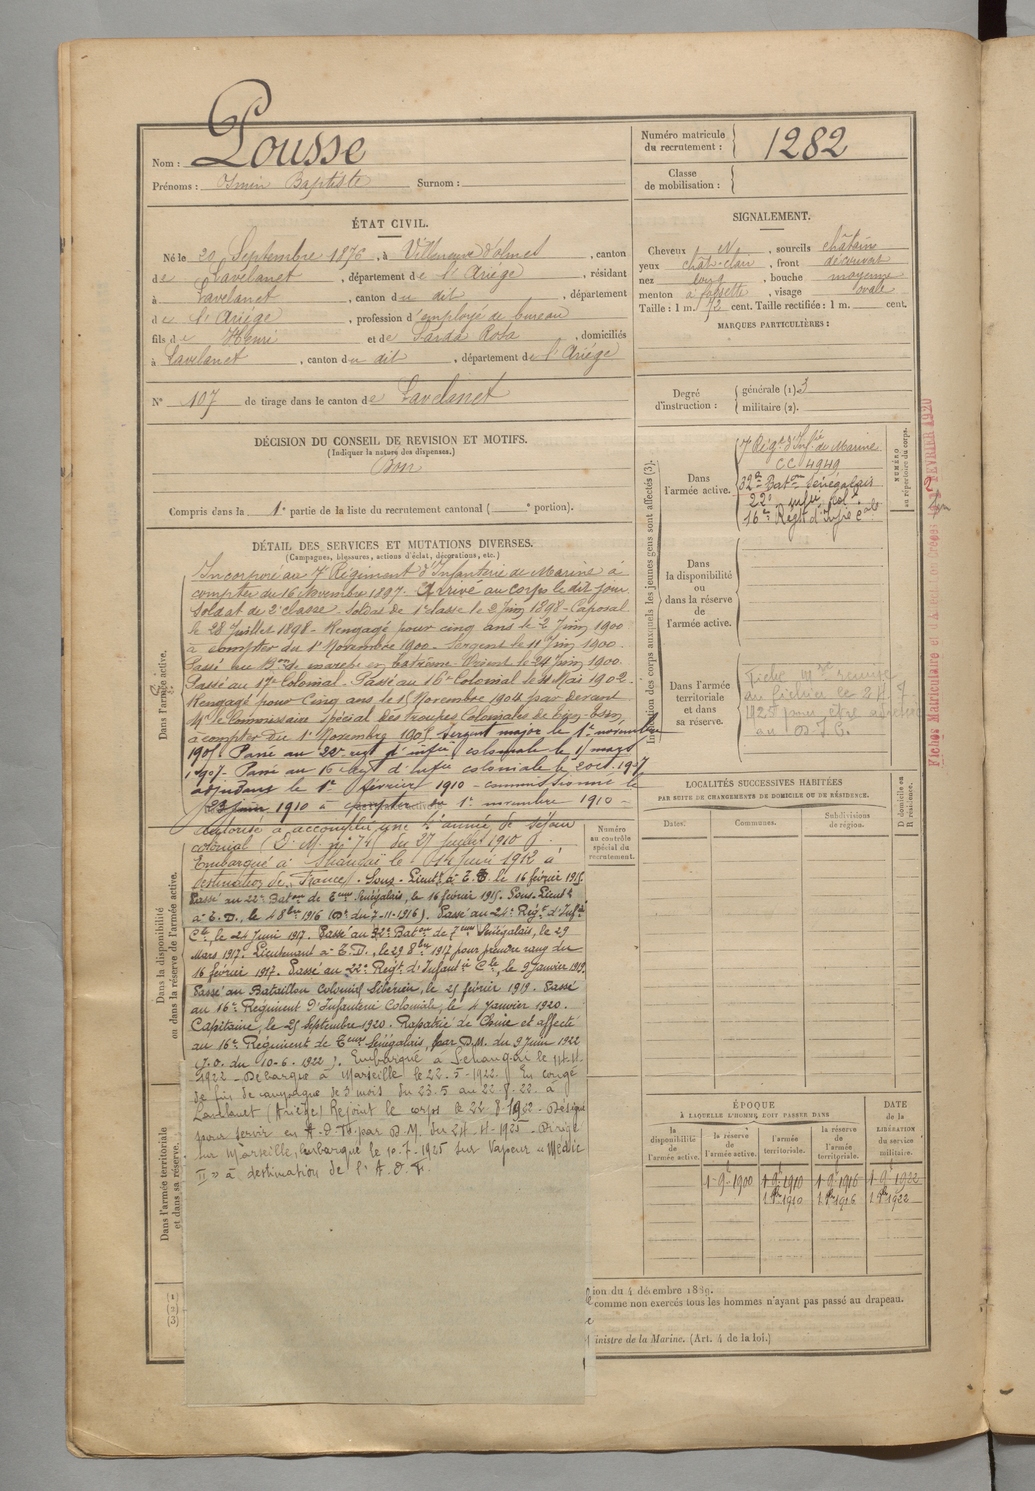 Nom : Pousse
Prénoms : Baptiste Surnom :
Numéro matricule du recrutement : 1282
Classe de mobilisation :
ÉTAT CIVIL.
Né le 20 Septembre 1876, à Villeneuve d'olmes, canton
de Lavelanet, département de l'Ariége, résidant
à Lavelanet, canton du dit, département
de l'Ariége, profession d'employé de bureau
fils de Henri et de Sarda Rosa, domiciliés
à Lavelanet, canton du dit, département de l'Ariége
N° 107 de tirage dans le canton de Lavelanet
DÉCISION DU CONSEIL DE REVISION ET MOTIFS.
(Indiquer la nature des dispenses.)
Bon
Compris dans la 1e partie de la liste du recrutement cantonal ( e portion).
SIGNALEMENT.
Cheveux N, sourcils châtains
yeux chât-clair, front découvert
nez long, bouche moyenne
menton à fossette, visage ovale
Taille : 1 m. 72 cent. Taille rectifiée : 1 m. cent.
MARQUES PARTICULIÈRES :
Degré d'instruction : générale (1) 3
militaire (2).
DÉTAIL DES SERVICES ET MUTATIONS DIVERSES.
(Campagnes, blessures, actions d'éclat, décorations, etc.)
Dans l'armée active.
Incorporé au 7e Régiment d'Infanterie de Marine à
compter du 16 Novembre 1897. Arrivé au corps le dit jour
Soldat de 2e classe. Soldat de 1e classe le 2 Juin 1898 - Caporal
le 28 Juillet 1898 - Rengagé pour cinq ans le 2 Juin 1900
à compter du 1er Novembre 1900. Sergent le 11 Juin 1900.
Passé au Bon de marche en Extrême Orient le 24 Juin 1900.
Passé au 17e Colonial. Passé au 16e Colonial le Mai 1902.
Rengagé pour Cinq ans le 15 Novembre 1904 par devant
Mr le Commissaire Spécial des Troupes Coloniales de
à compter du 1er Novembre 1905 Sergent major le 1er novembre
1905. Passé au 22e regt d'infie coloniale le 1er mars
1907. Passé au 16 regt d'Infie coloniale le 2 oct. 1907
adjudant le 1er février 1910 - commissionné le
23 juin 1910 à compter du 1er novembre 1910 -
autorisé à accomplir une année de séjour
colonial (D. M. n° 741 du 27 juillet 1910).
Embarqué à le 14 Juin 1912 à
destination de France. Sous-Lieutt à T. T. le 16 février 1915.
Passé au 22e Baton de Tirrs Sénégalais, le 16 février 1915. Sous-Lieutt
à T. D., le 4 8bre 1916 (D. du 7-11-1916). Passé au 24e Regt d'Infie
Cle, le 24 Juin 1917. Passé au 32e Baton de Tirrs Sénégalais, le 29
Mars 1917. Lieutenant à T. D., le 29 8bre 1917 pour prendre rang du
16 février 1917. Passé au 22e Regt d'Infantie Cle, le 9 Janvier 1919.
Passé au Bataillon Colonial Sibérien, le 25 février 1919. Passé
au 16e Regiment d'Infanterie Coloniale, le 4 Janvier 1920.
Capitaine, le 25 Septembre 1920. Rapatrié de Chine et affecté
au 16e Régiment de Tirrs Sénégalais, par D.M. du 9 Juin 1922
(J.O. du 10-6-1922). Embarqué à Schangaï le
1922 - Débarqué à Marseille le 22.5-1922. En congé
de fin de campagne de 3 mois du 23.5 au 22.8.22. à
Lavelanet (Ariège) Rejoint le corps le 22 8 1922 - Désigné
pour servir en par D.M. du 1925 - Dirigé
sur Marseille, embarqué le 10.7.1925 sur Vapeur "Médie
II" à destination de l'A.O.F.
Dans la disponibilité ou dans la réserve de l'armée active.
Dans l'armée territoriale et dans sa réserve.
(1)
(2)
(3)
Indication des corps auxquels les jeunes gens sont affectés (3).
Dans l'armée active.
7e Régt d'Infie de Marine
CC 4949
32e Baton Sénégalais
22e infie col.
16e Régt d'Infie Cale
Dans la disponibilité ou dans la réserve de l'armée active.
Dans l'armée territoriale et dans sa réserve.
Fiche Mle remise
au fichier le
NUMÉRO au répertoire du corps.
Fiches Matriculaire et FÉVRIER 1920
LOCALITÉS SUCCESSIVES HABITÉES
PAR SUITE DE CHANGEMENTS DE DOMICILE OU DE RÉSIDENCE.
D domicile ou R résidence.
Dates. Communes. Subdivisions de région.
Numéro au contrôle spécial du recrutement.
ÉPOQUE
À LAQUELLE L'HOMME DOIT PASSER DANS
la disponibilité de l'armée active.
la réserve de l'armée active.
l'armée territoriale.
la réserve de l'armée territoriale.
DATE de la LIBÉRATION du service militaire.
1-9-1900 1-9-1910 1-9-1916 1-9-1922
1 1910 1 1916 1 1922
ion du 4 décembre 1889.
comme non exercés tous les hommes n'ayant pas passé au drapeau.
inistre de la Marine. (Art. 4 de la loi.)